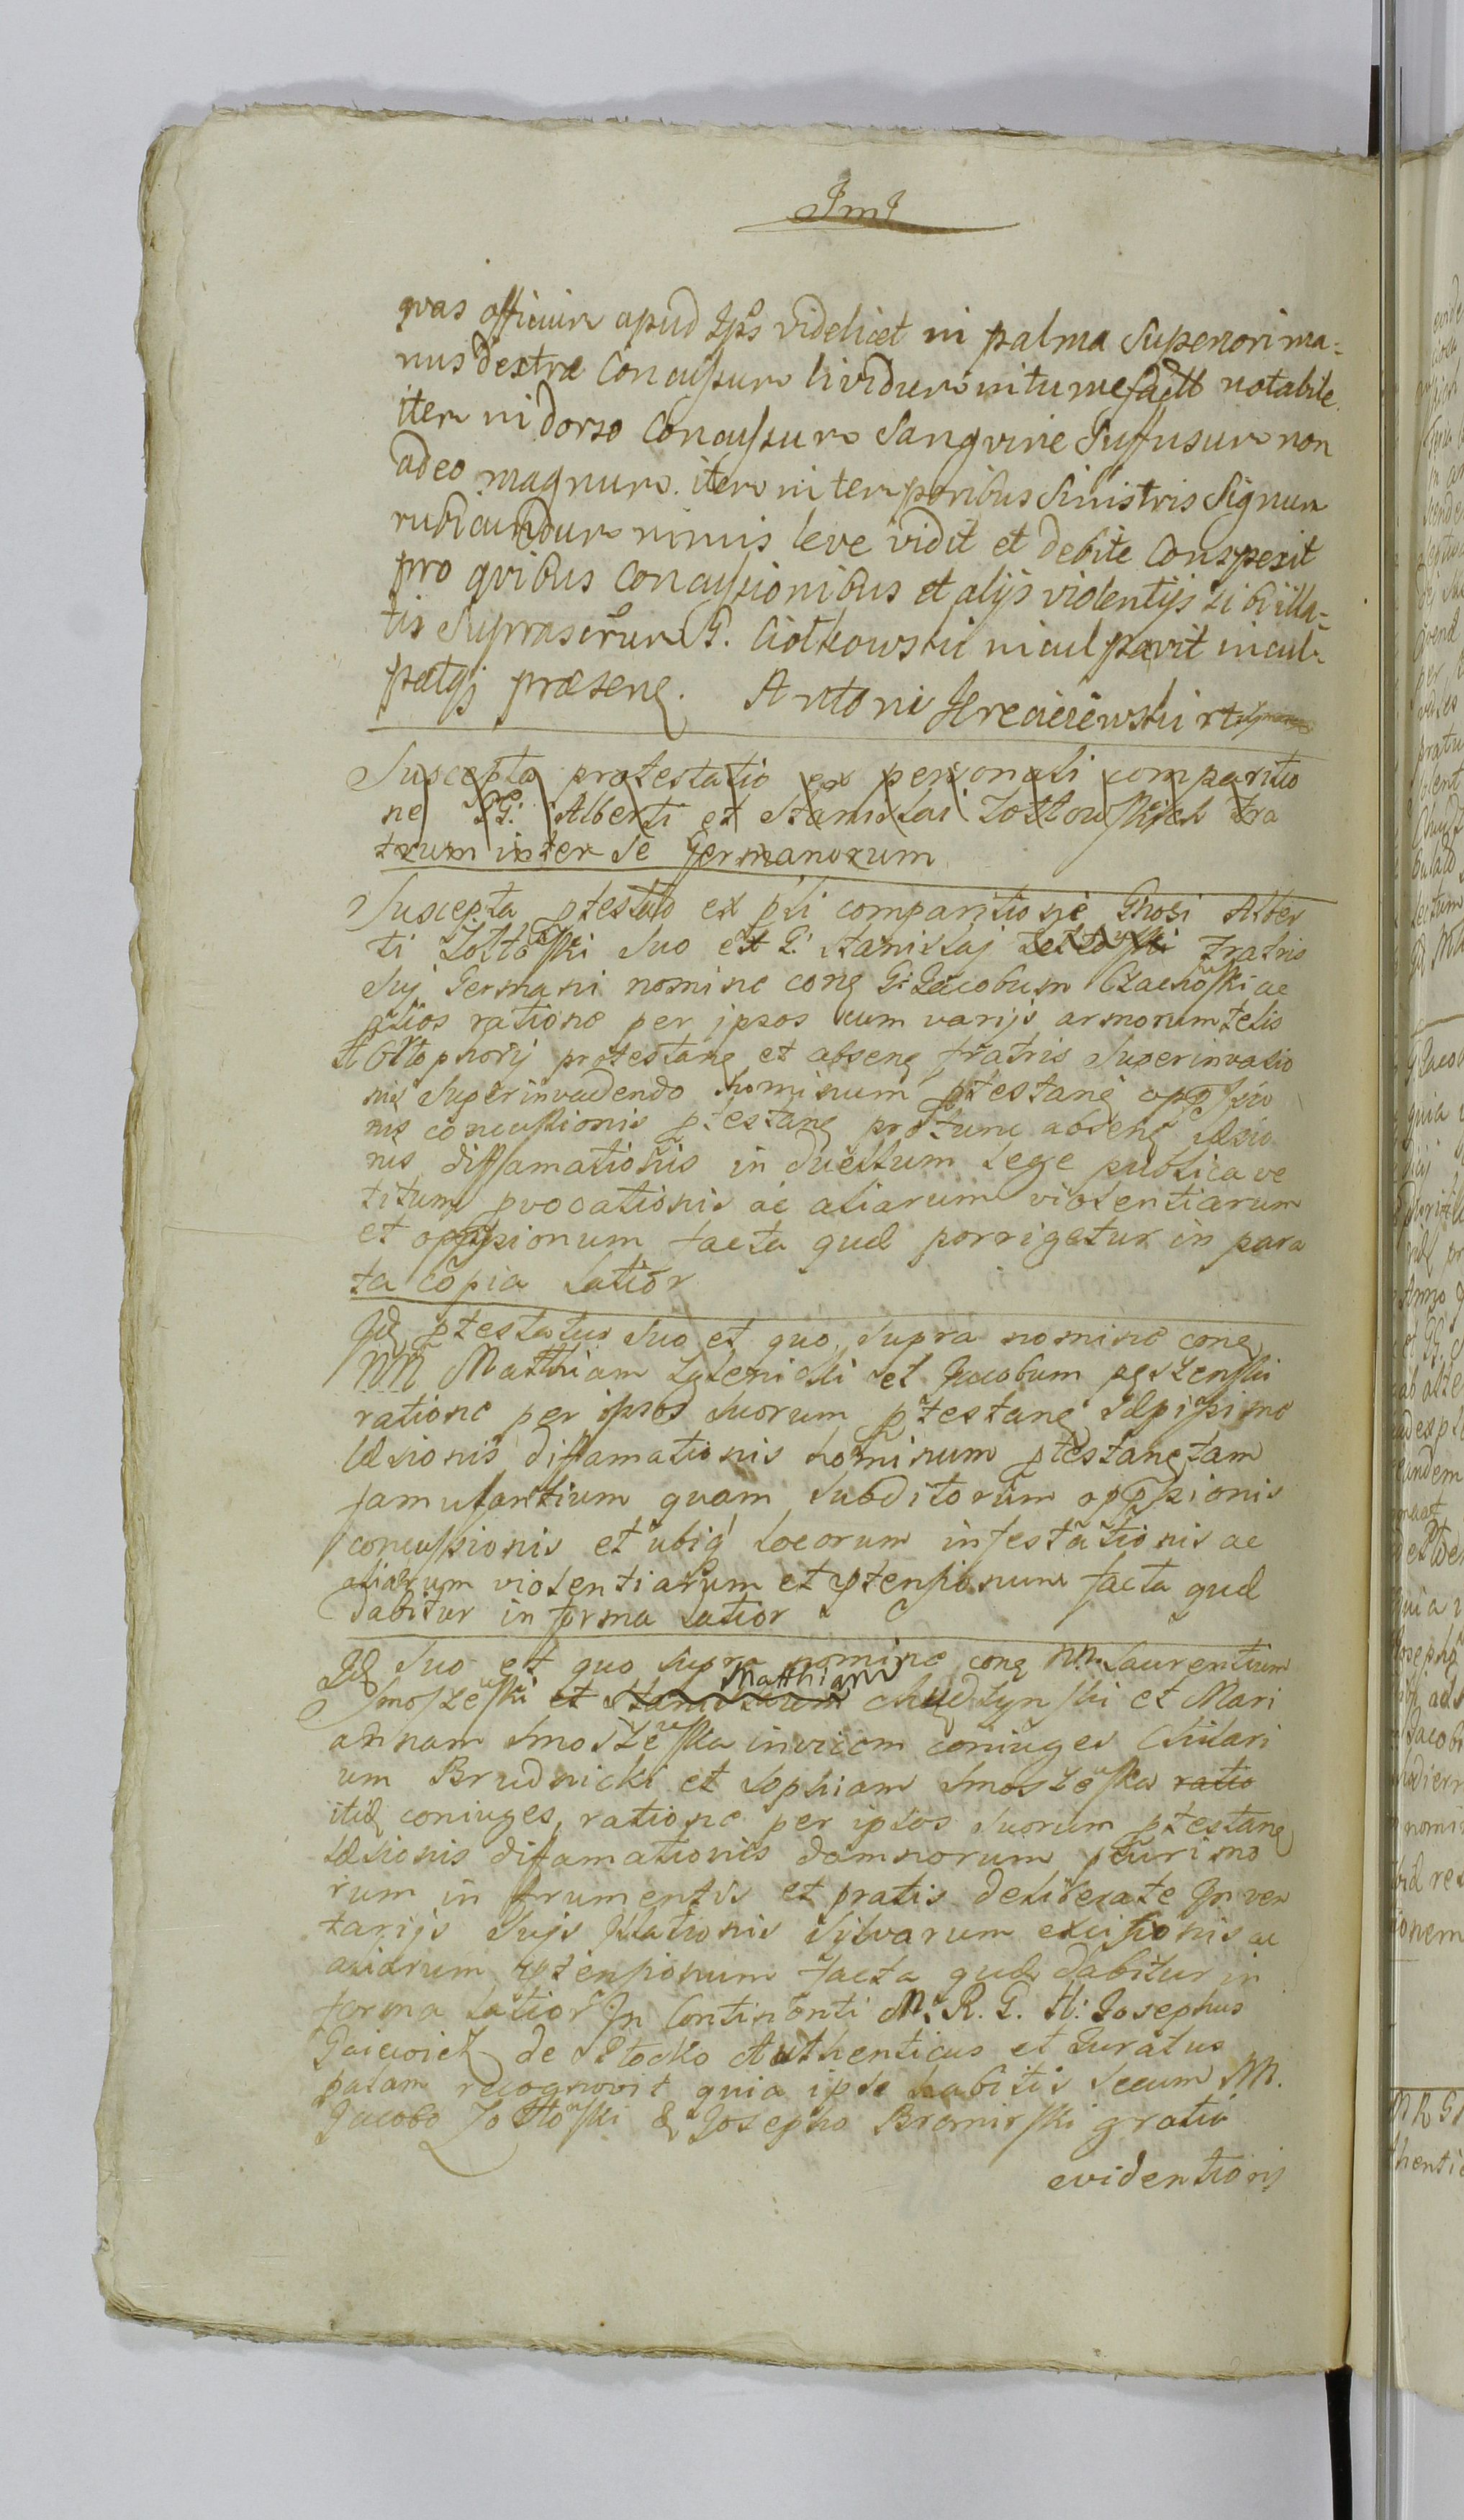 JmJ
qvas officium apud Ips videlicet in palma superiori ma=
nus dextræ Concussum lividum intumefactt notabile
item in dorso Concussum Sangvine Suffusum non
adeo magnum. item in temporibus Sinistris Signum
rubicundum nimis leve vidit et debite Conspexit
pro qvibus Concussionibus et alijs violentijs sibi illa=
tis Suprascrum G. Ciołkowski inculpavit incul-
patqj præsenę. Antoni
Suscepta protestatio ex personali comparitio
ne GG. Alberti et Stanislai Zołtowskich Fra
trum inter se Germanorum
Suscepta ptestatio ex pli comparitione Gnosi Alber
ti Zołtowski suo et G. Stanislaj Zołtowski Fratris
sui Germani nomine conę G: Jacobum Czachowski ac
alios ratione per ipsos cum varijs armorum telis
protestanę et absenę fratris superinvasio
nis superinvadendo hominum ptestanę oppssio
nis concussionis ptestanę protunc absenę læsio
nis diffamationis in duellum lege publica ve
titum pvocationis ac aliarum violentiarum
et oppssionum facta quæ porrigetur in para
ta copia latior
Idę ptestatus suo et quo supra nomine conę
NN Matthiam et Jacobum
ratione per ipsos suorum ptestanę sæpissime
læsionis diffamationis hominum ptestanę tam
famulantium quam subditorum oppssionis
concussionis et ubiq locorum infestationis ac
aliarum violentiarum et ptensionum facta quæ
dabitur in forma latior
Idę suo et quo supra nomine conę NN. Laurentium
Smoszewski et Stanislaum Matthiam Chudzynski et Mari
annam Smoszewska invicem coniuges Chilari
um Brudnicki et Sophiam Smoszewska ratio
itidę coniuges, ratione per ipsos suorum ptestanę
læsionis diffamationis damnorum plurimo
rum in frumentis et pratis deliberate Inven
tarijs suis illationis silvarum excisionis ac
aliarum ptensionum facta quæ dabitur in
forma latior In Continenti M. R. G. H: Josephus
Gaicwicz de Płocko Authenticus et Juratus
palam recognovit quia ipse habitis secum NN.
Jacobo Zołtowski & Josepho Bromirski gratia
evidentioris